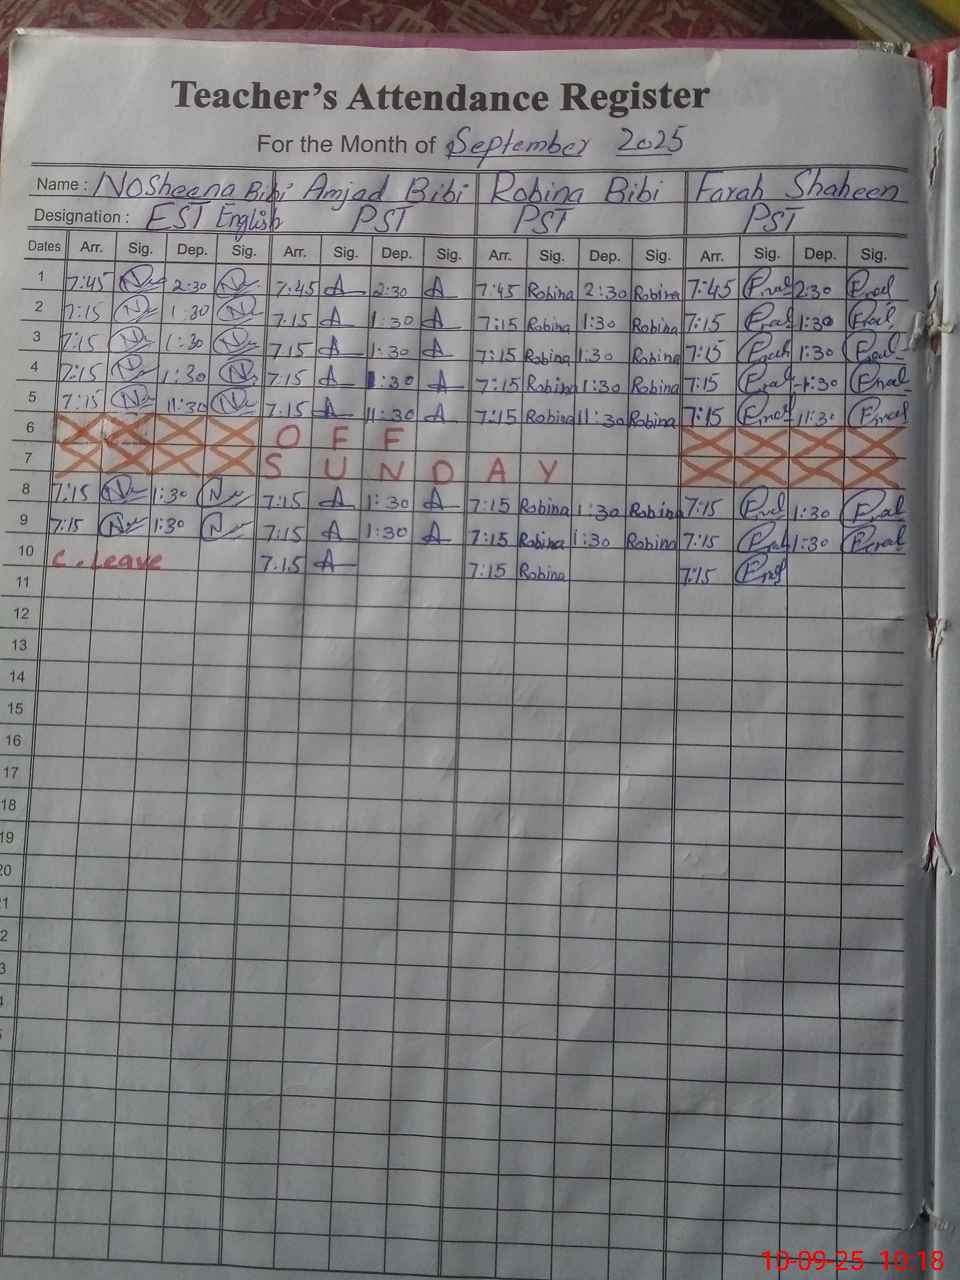 Teacher's Attendance Register
For the Month of September 2025
Name : NoSheena Bibi Amjad Bibi Robina Bibi Farah Shaheen
Designation : EST English PST PST PST
Dates Arr. Sig. Dep. Sig. Arr. Sig. Dep. Sig. Arr. Sig. Dep. Sig. Arr. Sig. Dep. Sig.
1 7:45 2:30 7:45 A 2:30 A 7:45 Robina 2:30 Robina 7:45 2:30
2 7:15 1:30 7:15 A 1:30 A 7:15 Robina 1:30 Robina 7:15 1:30
3 7:15 1:30 7:15 A 1:30 A 7:15 Robina 1:30 Robina 7:15 1:30
4 7:15 1:30 7:15 A 1:30 A 7:15 Robina 1:30 Robina 7:15 1:30
5 7:15 11:30 7:15 A 11:30 A 7:15 Robina 11:30 Robina 7:15 11:30
6 O F F
7 S U N D A Y
8 7:15 1:30 7:15 A 1:30 A 7:15 Robina 1:30 Robina 7:15 1:30
9 7:15 1:30 7:15 A 1:30 A 7:15 Robina 1:30 Robina 7:15 1:30
10 C. Leave 7:15 A 7:15 Robina 7:15
11
12
13
14
15
16
17
18
19
20
10-09-25 10:18